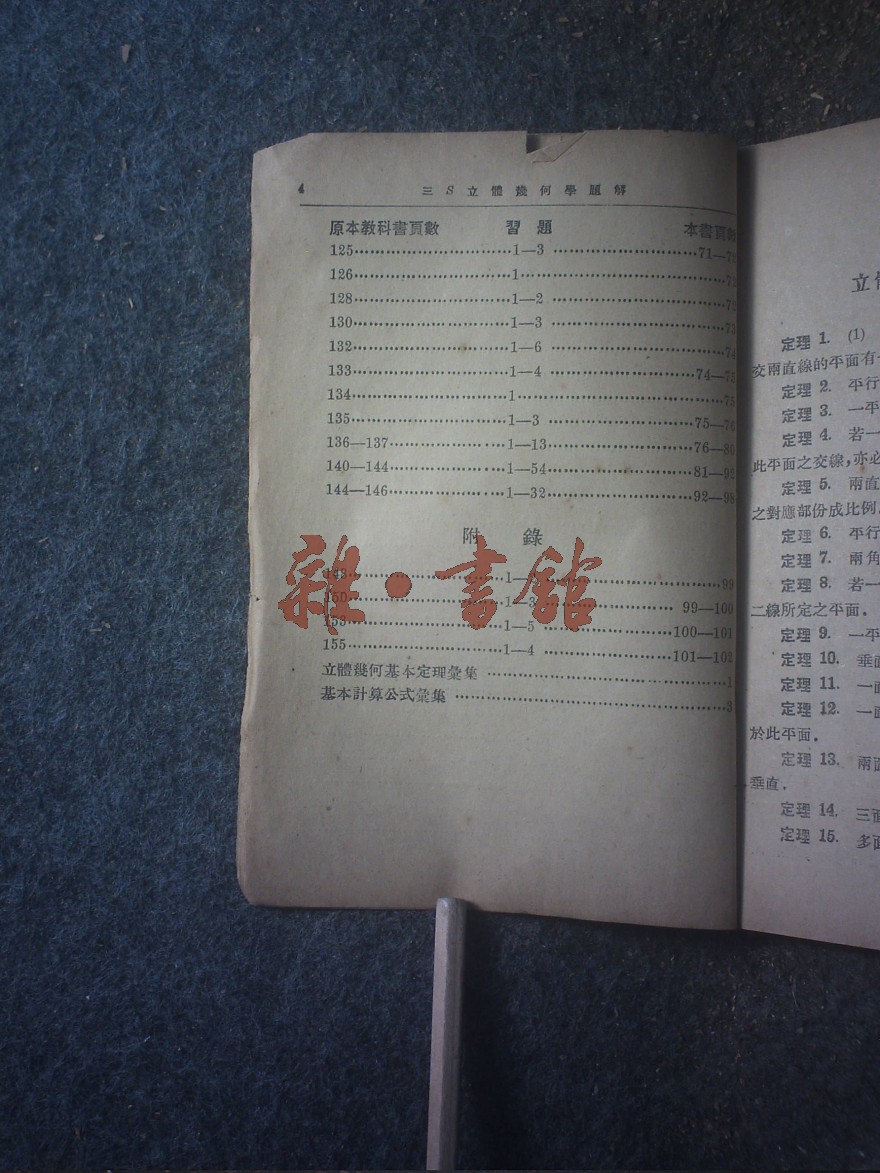 4 三 S 立 體 幾 何 學 題 解
原本教科書頁數 習 題 本書頁
125 1—3 71—
126 1
128 1—2 72
130 1—3 73
132 1—6 74
133 1—4 74—75
134 1 75
135 1—3 75—76
136—137 1—13 76—80
140—144 1—54 81—92
144—146 1—32 92—98
附 錄
1— 99
1—3 99—100
1—5 100—101
155 1—4 101—102
立體幾何基本定理彙集 1
基本計算公式彙集 3
雜·書館
立
定理 1. (1)
交兩直線的平面有
定理 2. 平行
定理 3. 一平
定理 4. 若一
此平面之交線,亦必
定理 5. 兩直
之對應部份成比例
定理 6. 平行
定理 7. 兩角
定理 8. 若一
二線所定之平面.
定理 9. 一平
定理 10. 垂直
定理 11. 一面
定理 12. 一面
於此平面.
定理 13. 兩面
垂直.
定理 14. 三面
定理 15. 多面